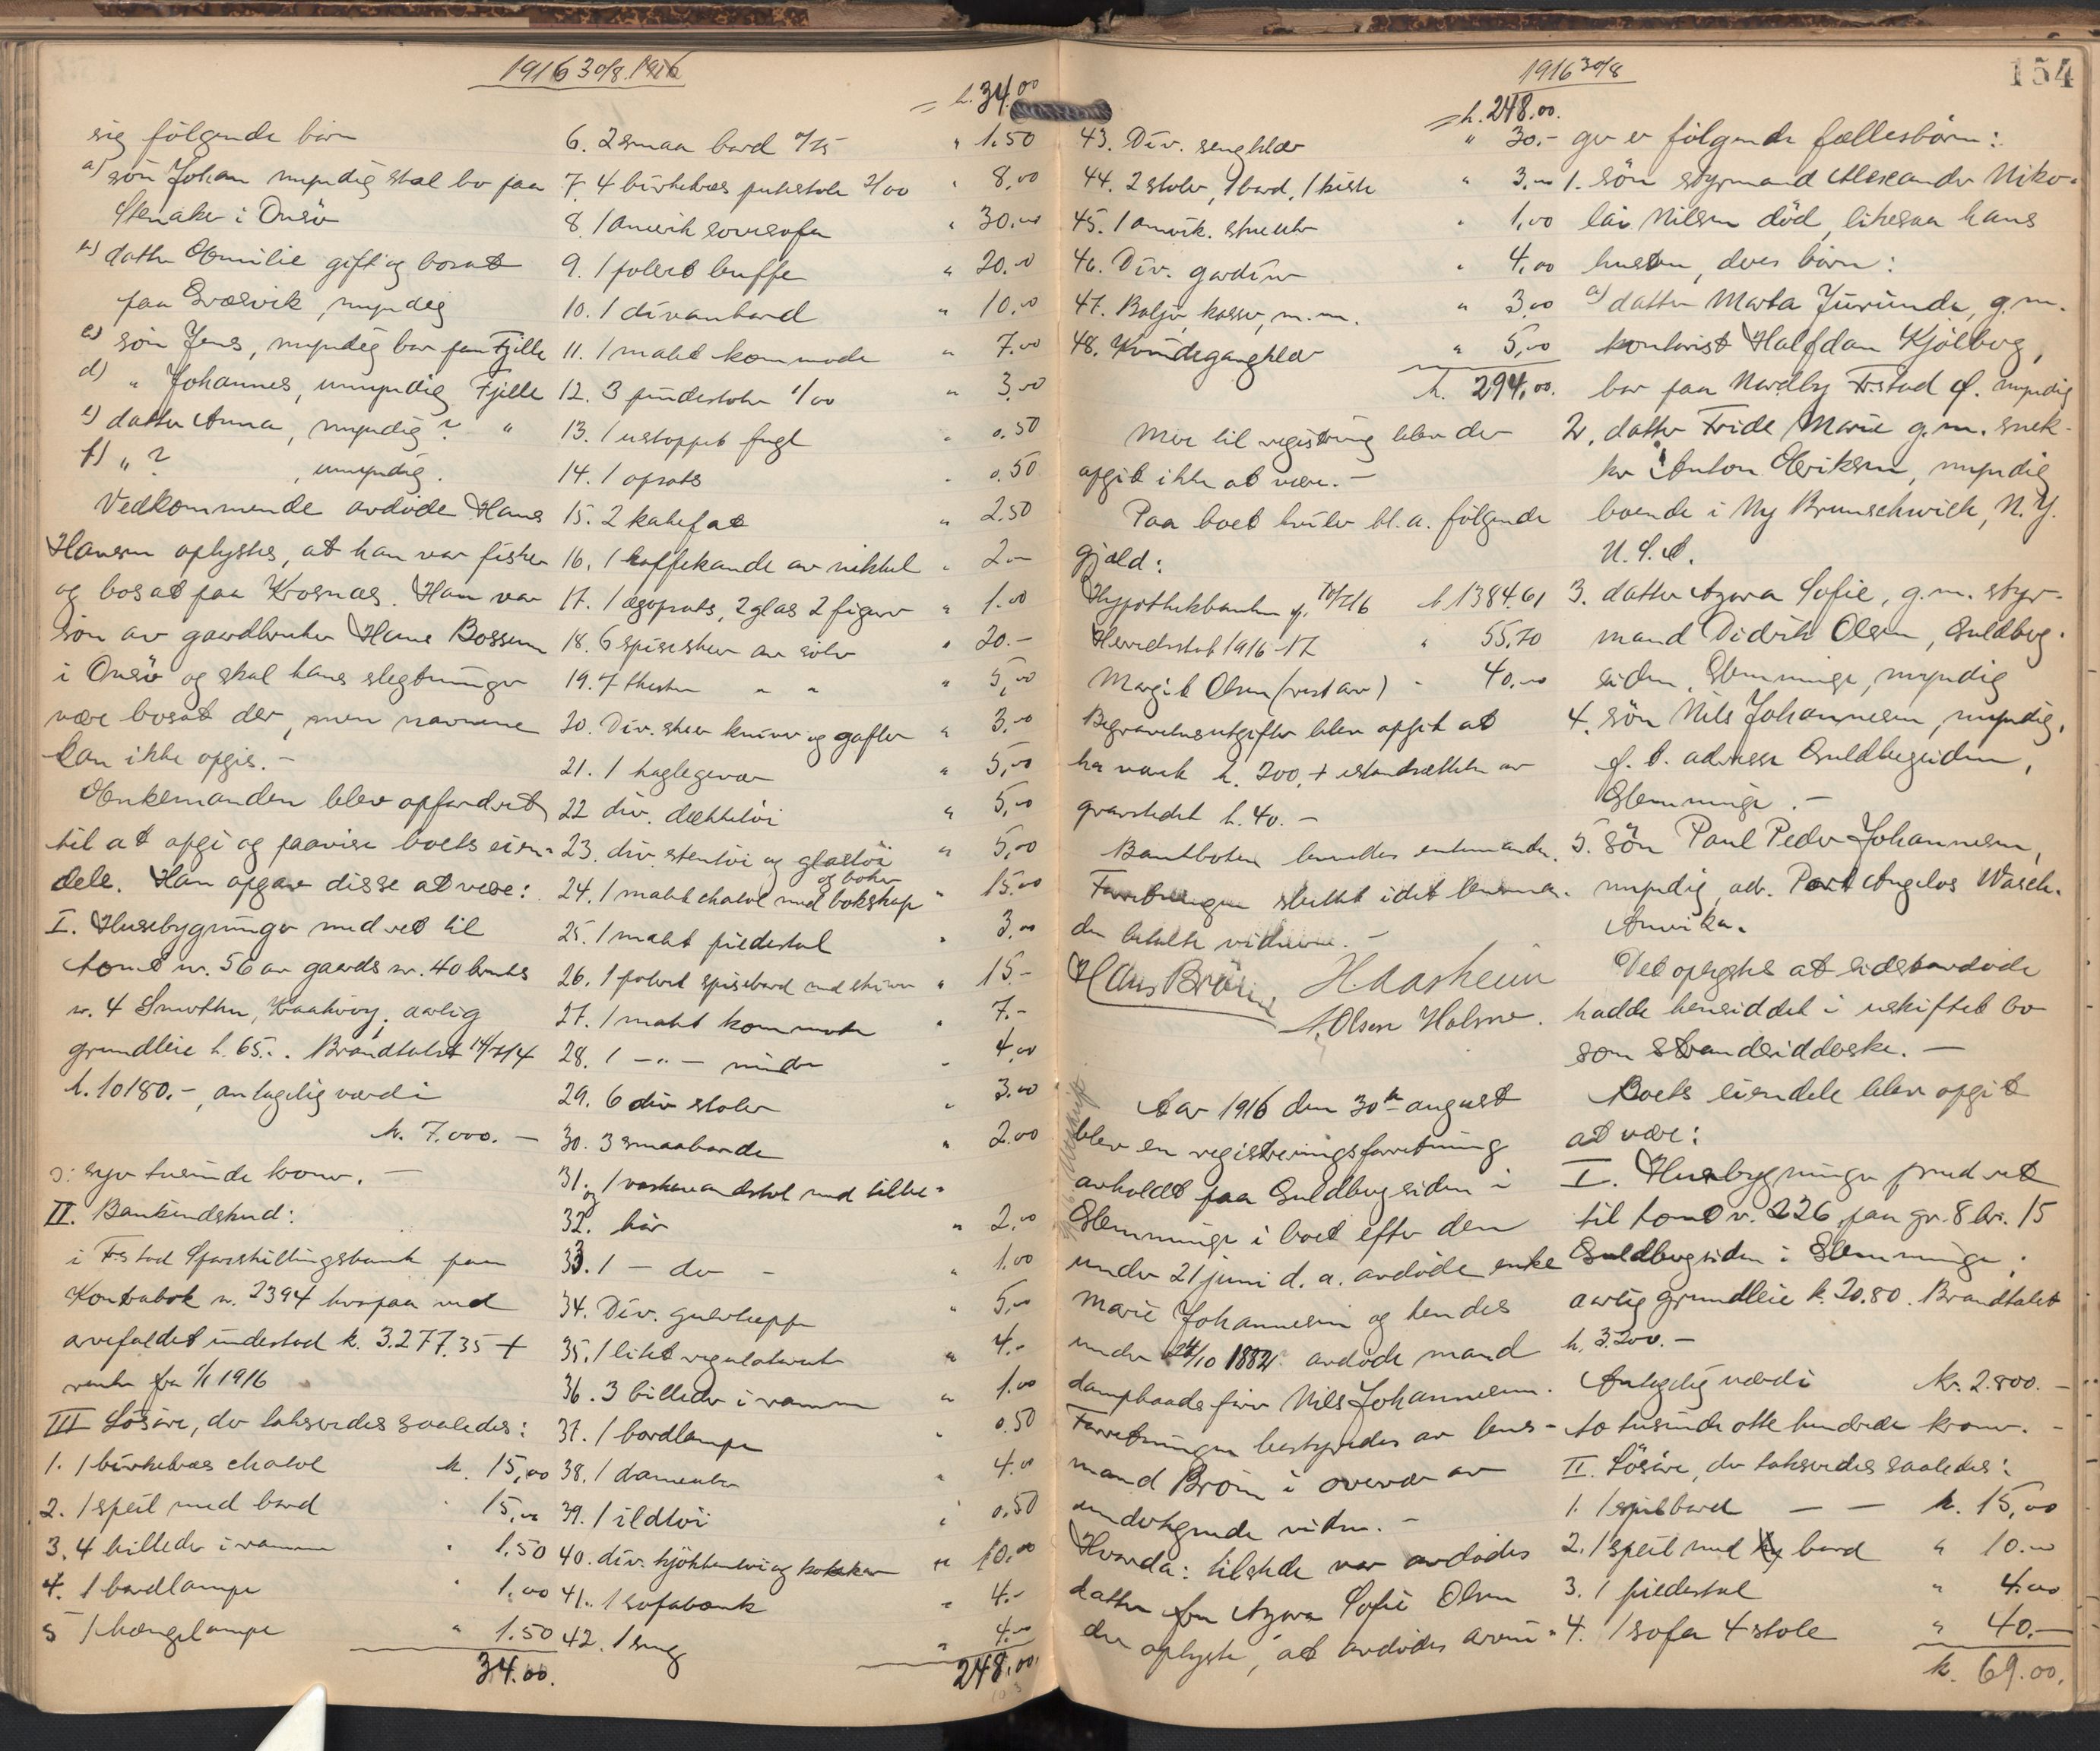 1916 30/8 1916
sig følgende børn
a) søn Johan myndig skal bo paa
Stenaker i Onsö
b) datter Emilie gift og bosat
paa Græsvik, myndig
c) søn Jens, myndig bor paa Fjelle
d) " Johannes, umyndig Fjelle
e) datter Anna, myndig? "
f) " ? , umyndig.
Vedkommende avdöde Hans
Hansen oplystes, at han var fisker
og bosat paa Krosnæs. Han var
sön av gaardbruker Hans Bossum
i Onsö og skal hans slegtninger
være bosat der, men navnene
kan ikke opgis. –
Enkemanden blev opfordret
til at opgi og paavise boets eien-
dele. Han opgav disse at være:
I. Husebygninger med ret til
tomt nr. 56 av gaards nr. 40 bruks
nr. 4 Smerthu, Kraakeröy, aarlig
grundleie k. 65.-. Brandtakst 14/7 14
k. 10180.-, antagelig værdi
k. 7.000. –
ɔ: syv tusinde kroner. –
II. Bankindskud:
i F.stad Sparskillingsbank paa
Kontrabok nr. 2394 hvorpaa ved
arvefaldet indestod k. 3.277.35 +
renter fra 1/1 1916
III Lösöre, der takseredes saaledes:
1. 1 birketræs chatol k. 15,00
2. 1 speil med bord " 15,00
3. 4 billeder i ramme " 1.50
4. 1 bordlampe " 1,00
5 1 hængelampe " 1.50
34.00.
= k. 34.00
6. 2 smaa bord 0/75 " 1.50
7. 4 birketræs pindestole 2/00 " 8,00
8. 1 amerik sovesofa " 30,00
9. 1 polert buffe " 20.00
10. 1 divanbord " 10,00
11. 1 malet kommode " 7.00
12. 3 pindestoler 1/00 " 3,00
13. 1 ustoppet fugl " 0.50
14. 1 opsats " 0.50
15. 2 kakefat " 2.50
16. 1 kaffekande av nikkel " 2.–
17. 1 ægopsats, 2 glas 2 figurer " 1.00
18. 6 spiseskeer av sölv " 20.–
19. 7 theskeer " " " 5,00
20. Div. skeer kniver og gafler " 3,00
21. 1 haglegevær " 5,00
22 div. dekketöi " 5,00
23. div. stentöi og glastöi " 5,00
24. 1 malet chatol med bokskap og böker " 15.00
25. 1 malet piedestal " 3,00
26. 1 polert spisebord med skiver " 15.–
27. 1 malet kommode " 7.–
28. 1 – " – mindre " 4,00
29. 6 div stoler " 3.00
30. 3 smaaborde " 2.00
31. 1 vaskevandstol med tilbe-
og
32. hör " 2.00
33. 1 – do – " 1.00
34. Div. gulvtepper " 5,00
35. 1 litet regulatorur " 4.–
36. 3 billeder i ramme " 1.00
37. 1 bordlampe " 0.50
38. 1 dameuhr " 4.00
39. 1 ildtöi " 0.50
40. div. kjökkentöi og kokekar " 10.00
41. 1 sofabænk " 4.–
42. 1 seng " 4.00
248.00.
1916 30/8
154
= k. 248.00.
43. Div. sengklær " 30.–
44. 2 stoler, 1 bord, 1 kiste " 3,00
45. 1 amerik. stueuhr " 1,00
46. Div. gardiner " 4,00
47. Baljer, kasser, m.m. " 3,00
48. Kvindegangklær " 5,00
k. 294,00.
Mer til registrering blev der
opgit ikke at være. –
Paa boet hviler bl.a. følgende
gjæld:
Hypothekbanken pr. 10/7 16 k 1384.61
Herredsskat 1916–17 " 55,70
Margit Olsen (rest arv) " 40,00
Begravelsesutgifter blev opgit at
ha været k. 200, + istandsættelse av
gravstedet k. 40. –
Bankboken beroedes enkemanden.
Forretningen sluttet idet lensman-
den betalte vidnerne. –
Hans Bröin H. Aasheim
A. Olsen Holme.
Aar 1916 den 30te august
blev en registreringsforretning
avholdt paa Guldbergsiden i
Glemminge i boet efter den
under 21 juni d. a. avdöde enke
Marie Johannesen og hendes
under 24/10 1882 avdöde mand
dampbaadsförer Nils Johannesen.
Forretningen bestyredes av lens-
mand Bröin i overvær av
undertegnede vidner. –
Hvorda: tilstede var avdödes
datter fru Azora Sofie Olsen
der oplyste, at avdödes arvin-
ger er følgende fællesbörn:
1. sön styrmand Alexander Niko-
lai Nilsen död, likesaa hans
hustru, deres börn:
a) datter Marta Jurunda, g.m.
kontorist Halfdan Kjölberg,
bor paa Nordby F.stad p. myndig
2. datter Fride Marie g.m. snek-
ker Anton Eriksen, myndig
boende i Ny Brunschwick, N.Y.
U.S.A.
3. datter Azora Sofie, g.m. styr-
mand Didrik Olsen, Guldberg-
siden, Glemminge, myndig
4. sön Nils Johannesen, myndig,
p. t. adresse Guldbergsiden,
Glemminge. –
5. sön Paul Peder Johannesen,
myndig, adr. Port Angelos Wasch.
Amerika.
Det oplystes at sidstavdöde
hadde hensiddet i uskiftet bo
som strandsidderske. –
Boets eiendele blev opgit
at være:
I. Husebygninger med ret
til tomt nr. 226 paa gr. 8 br. 15
Guldbergsiden i Glemminge,
aarlig grundleie k. 20.80. Brandtakst
k. 3200.–
Antagelig værdi kr. 2.800. –
to tusinde otte hundrede kroner. –
II. Lösöre, der takseredes saaledes:
1. 1 spilbord – – k. 15,00
2. 1 speil med bord " 10.00
3. 1 piedestal " 4.00
4. 1 sofa 4 stole " 40.–
k. 69.00.